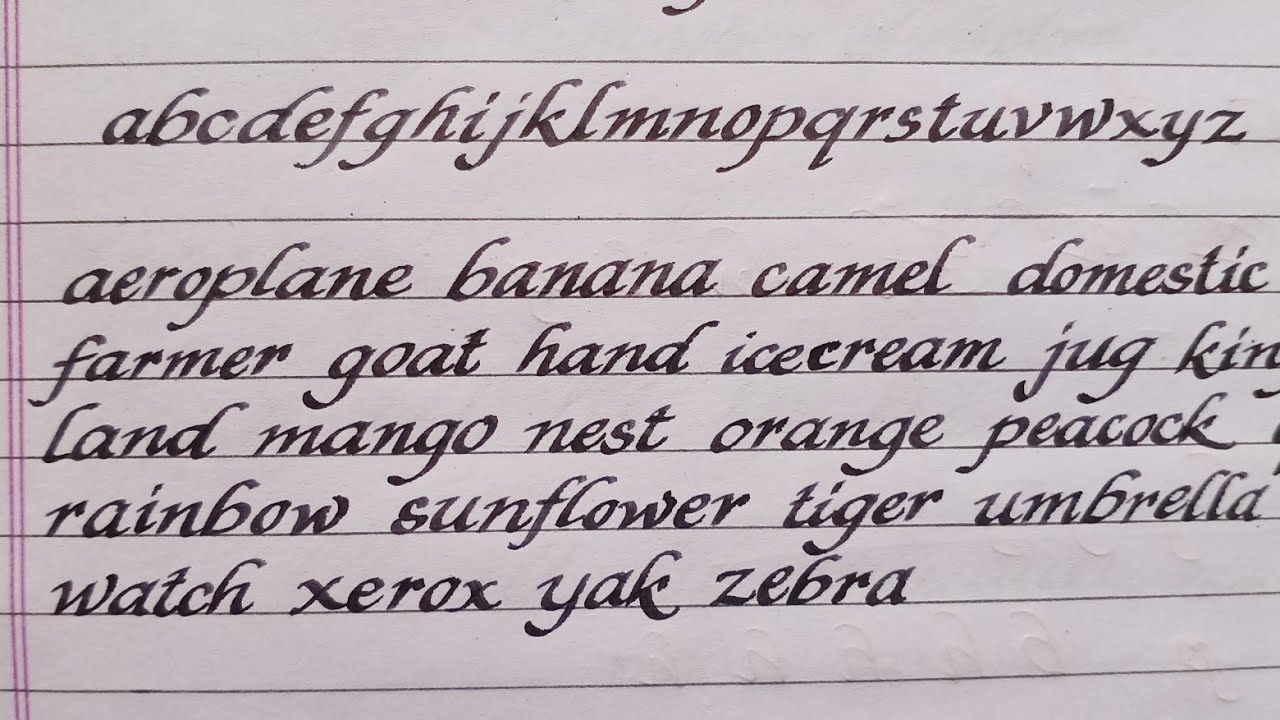 abcdefghijklmnopqrstuvwxyz
aeroplane banana camel domestic
farmer goat hand icecream jug kin
land mango nest orange peacock
rainbow sunflower tiger umbrella
watch xerox yak zebra